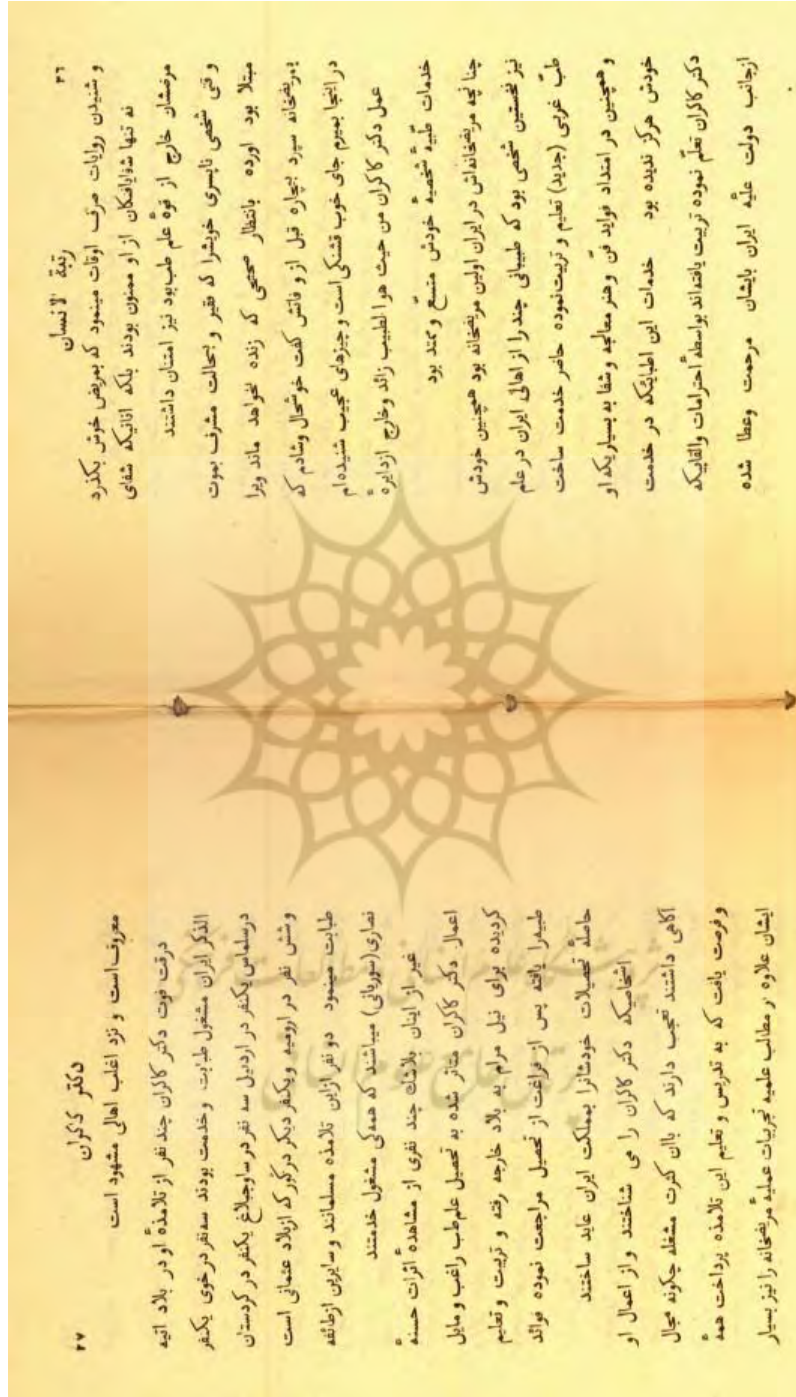 ۳۶
رتبة الانسان
و شنیدن روایات صرف اوقات مینمود که بمریض خوش بکذرد
نه تنها شفایافتکان از او ممنون بودند بلکه انانیکه شفای
مرضشان خارج از قوهٔ علم طب بود نیز امتنان داشتند
وقتی شخصی ناپسری خویشرا که فقیر و بحالت مشرف بموت
مبتلا بود اورده بانتظار صحتی که زنده نخواهد ماند ویرا
بمریضخانه سپرد بیچاره قبل از وفاتش کفت خوشحال وشادم که
در اینجا بمیرم جای خوب قشنکی است و چیزهای عجیب شنیده ام
عمل دکتر کاکران من حیث هو الطبیب زائد وخارج از دایرهٔ
خدمات طبیهٔ شخصیهٔ خودش متسع و ممتد بود
چنا نچه مریضخانه‌اش در ایران اولین مریضخانه بود همچنین خودش
نیز نخستین شخصی بود که طبیبانی چند را از اهالی ایران در علم
طب غربی (جدید) تعلیم و تربیت نموده حاضر خدمت ساخت
و همچنین در امتداد فواید فن و هنر معالجه و شفا به بسیاریکه او
خودش هرکز ندیده بود خدمات این اطبائیکه در خدمت
دکتر کاکران تعلم نموده تربیت یافته‌اند بواسطهٔ احترامات والقابیکه
ازجانب دولت علیّه ایران بایشان مرحمت وعطا شده
۳۷
دکتر کاکران
معروف است و نزد اغلب اهالی مشهود است
درقت فوت دکتر کاکران چند نفر از تلامذهٔ او در بلاد اتیه
الذکر ایران مشغول طبابت و خدمت بودند سه نفر در خوی یکنفر
درسلماس یکنفر در اردبیل سه نفر در ساوجبلاغ یکنفر در کردستان
وشش نفر در ارومیه ویکنفر دیکر در کور که ازبلاد عثمانی است
طبابت مینمود دو نفر ازاین تلامذه مسلمانند و سایرین ازطائفه
نصاری (سوریانی) میباشند که همه‌کی مشغول خدمتند
غیر از اینان بلاشك چند نفری از مشاهدهٔ اثرات حسنهٔ
اعمال دکتر کاکران متاثر شده به تحصیل علم طب راغب و مایل
کردیده برای نیل مرام به بلاد خارجه رفته و تربیت و تعلیم
طبیه‌را یافته پس از فراغت از تحصیل مراجعت نموده فوائد
حاصلهٔ تحصیلات خودشانرا بمملکت ایران عاید ساختند
اشخاصیکه دکتر کاکران را می شناختند و از اعمال او
آکاهی داشتند تعجب دارند که باان کثرت مشغله چکونه مجال
و فرصت یافت که به تدریس و تعلیم این تلامذه پرداخت همهٔ
ایشان علاوه بر مطالب علمیه تجربیات عملیهٔ مریضخانه را نیز بسیار